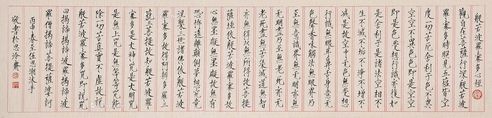 般若波羅蜜多心經
觀自在菩薩行深般若波
羅蜜多時照見五蘊皆空
度一切苦厄舍利子色不異
空空不異色色即是空空
即是色受想行識亦復如
是舍利子是諸法空相不
生不滅不垢不淨不增不
減是故空中無色無受想
行識無眼耳鼻舌身意無
色聲香味觸法無眼界乃
至無意識界無無明亦無
無明盡乃至無老死亦無
老死盡無苦集滅道無智
亦無得以無所得故菩提
薩埵依般若波羅蜜多故
心無罣礙無罣礙故無有
恐怖遠離顛倒夢想究竟
涅槃三世諸佛依般若波
羅蜜多故得阿耨多羅三
藐三菩提故知般若波羅
蜜多是大神咒是大明咒
是無上咒是無等等咒能
除一切苦真實不虛故說
般若波羅蜜多咒即說咒
曰揭諦揭諦波羅揭諦波
羅僧揭諦菩提薩婆訶
丙申春